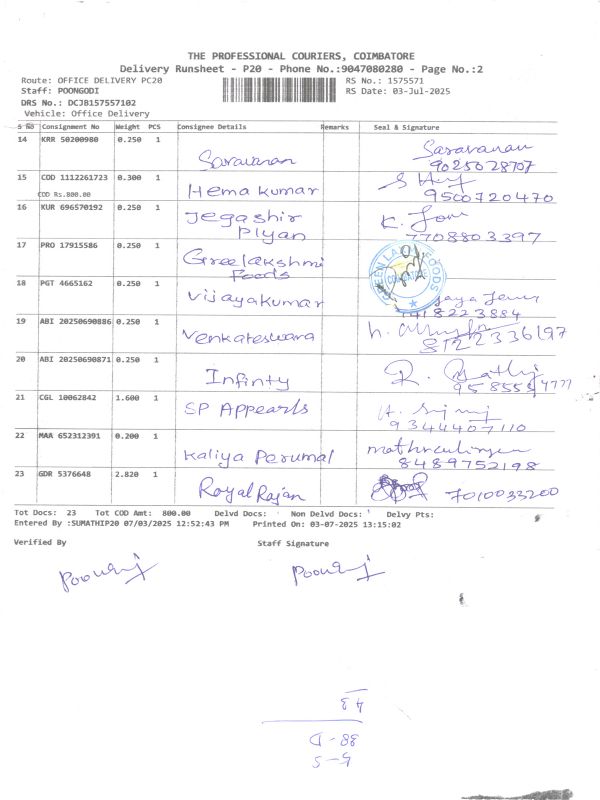 THE PROFESSIONAL COURIERS, COIMBATORE
Delivery Runsheet - P20 - Phone No.:9047080280 - Page No.:2
Route: OFFICE DELIVERY PC20 RS No.: 1575571
Staff: POONGODI RS Date: 03-Jul-2025
DRS No.: DCJB157557102
Vehicle: Office Delivery
S No Consignment No Weight PCS Consignee Details Remarks Seal & Signature
14 KRR 50200980 0.250 1 Saravanan Saravanan
9025028707
15 COD 1112261723 0.300 1 Hema kumar
COD Rs.800.00 9500720470
16 KUR 696570192 0.250 1 Jegashir
Plyan 7708803397
17 PRO 17915586 0.250 1 Greelakshmi
Foods
18 PGT 4665162 0.250 1 Vijayakumar
19 ABI 20250690886 0.250 1 Venkateswara
8122336197
20 ABI 20250690871 0.250 1 Infinty
21 CGL 10062842 1.600 1 SP Appearls
9344407110
22 MAA 652312391 0.200 1 Kaliya Perumal
8489752198
23 GDR 5376648 2.820 1 Royal Rajan 7010033200
Tot Docs: 23 Tot COD Amt: 800.00 Delvd Docs: Non Delvd Docs: Delvy Pts:
Entered By :SUMATHIP20 07/03/2025 12:52:43 PM Printed On: 03-07-2025 13:15:02
Verified By Staff Signature
5-5
38-D
43